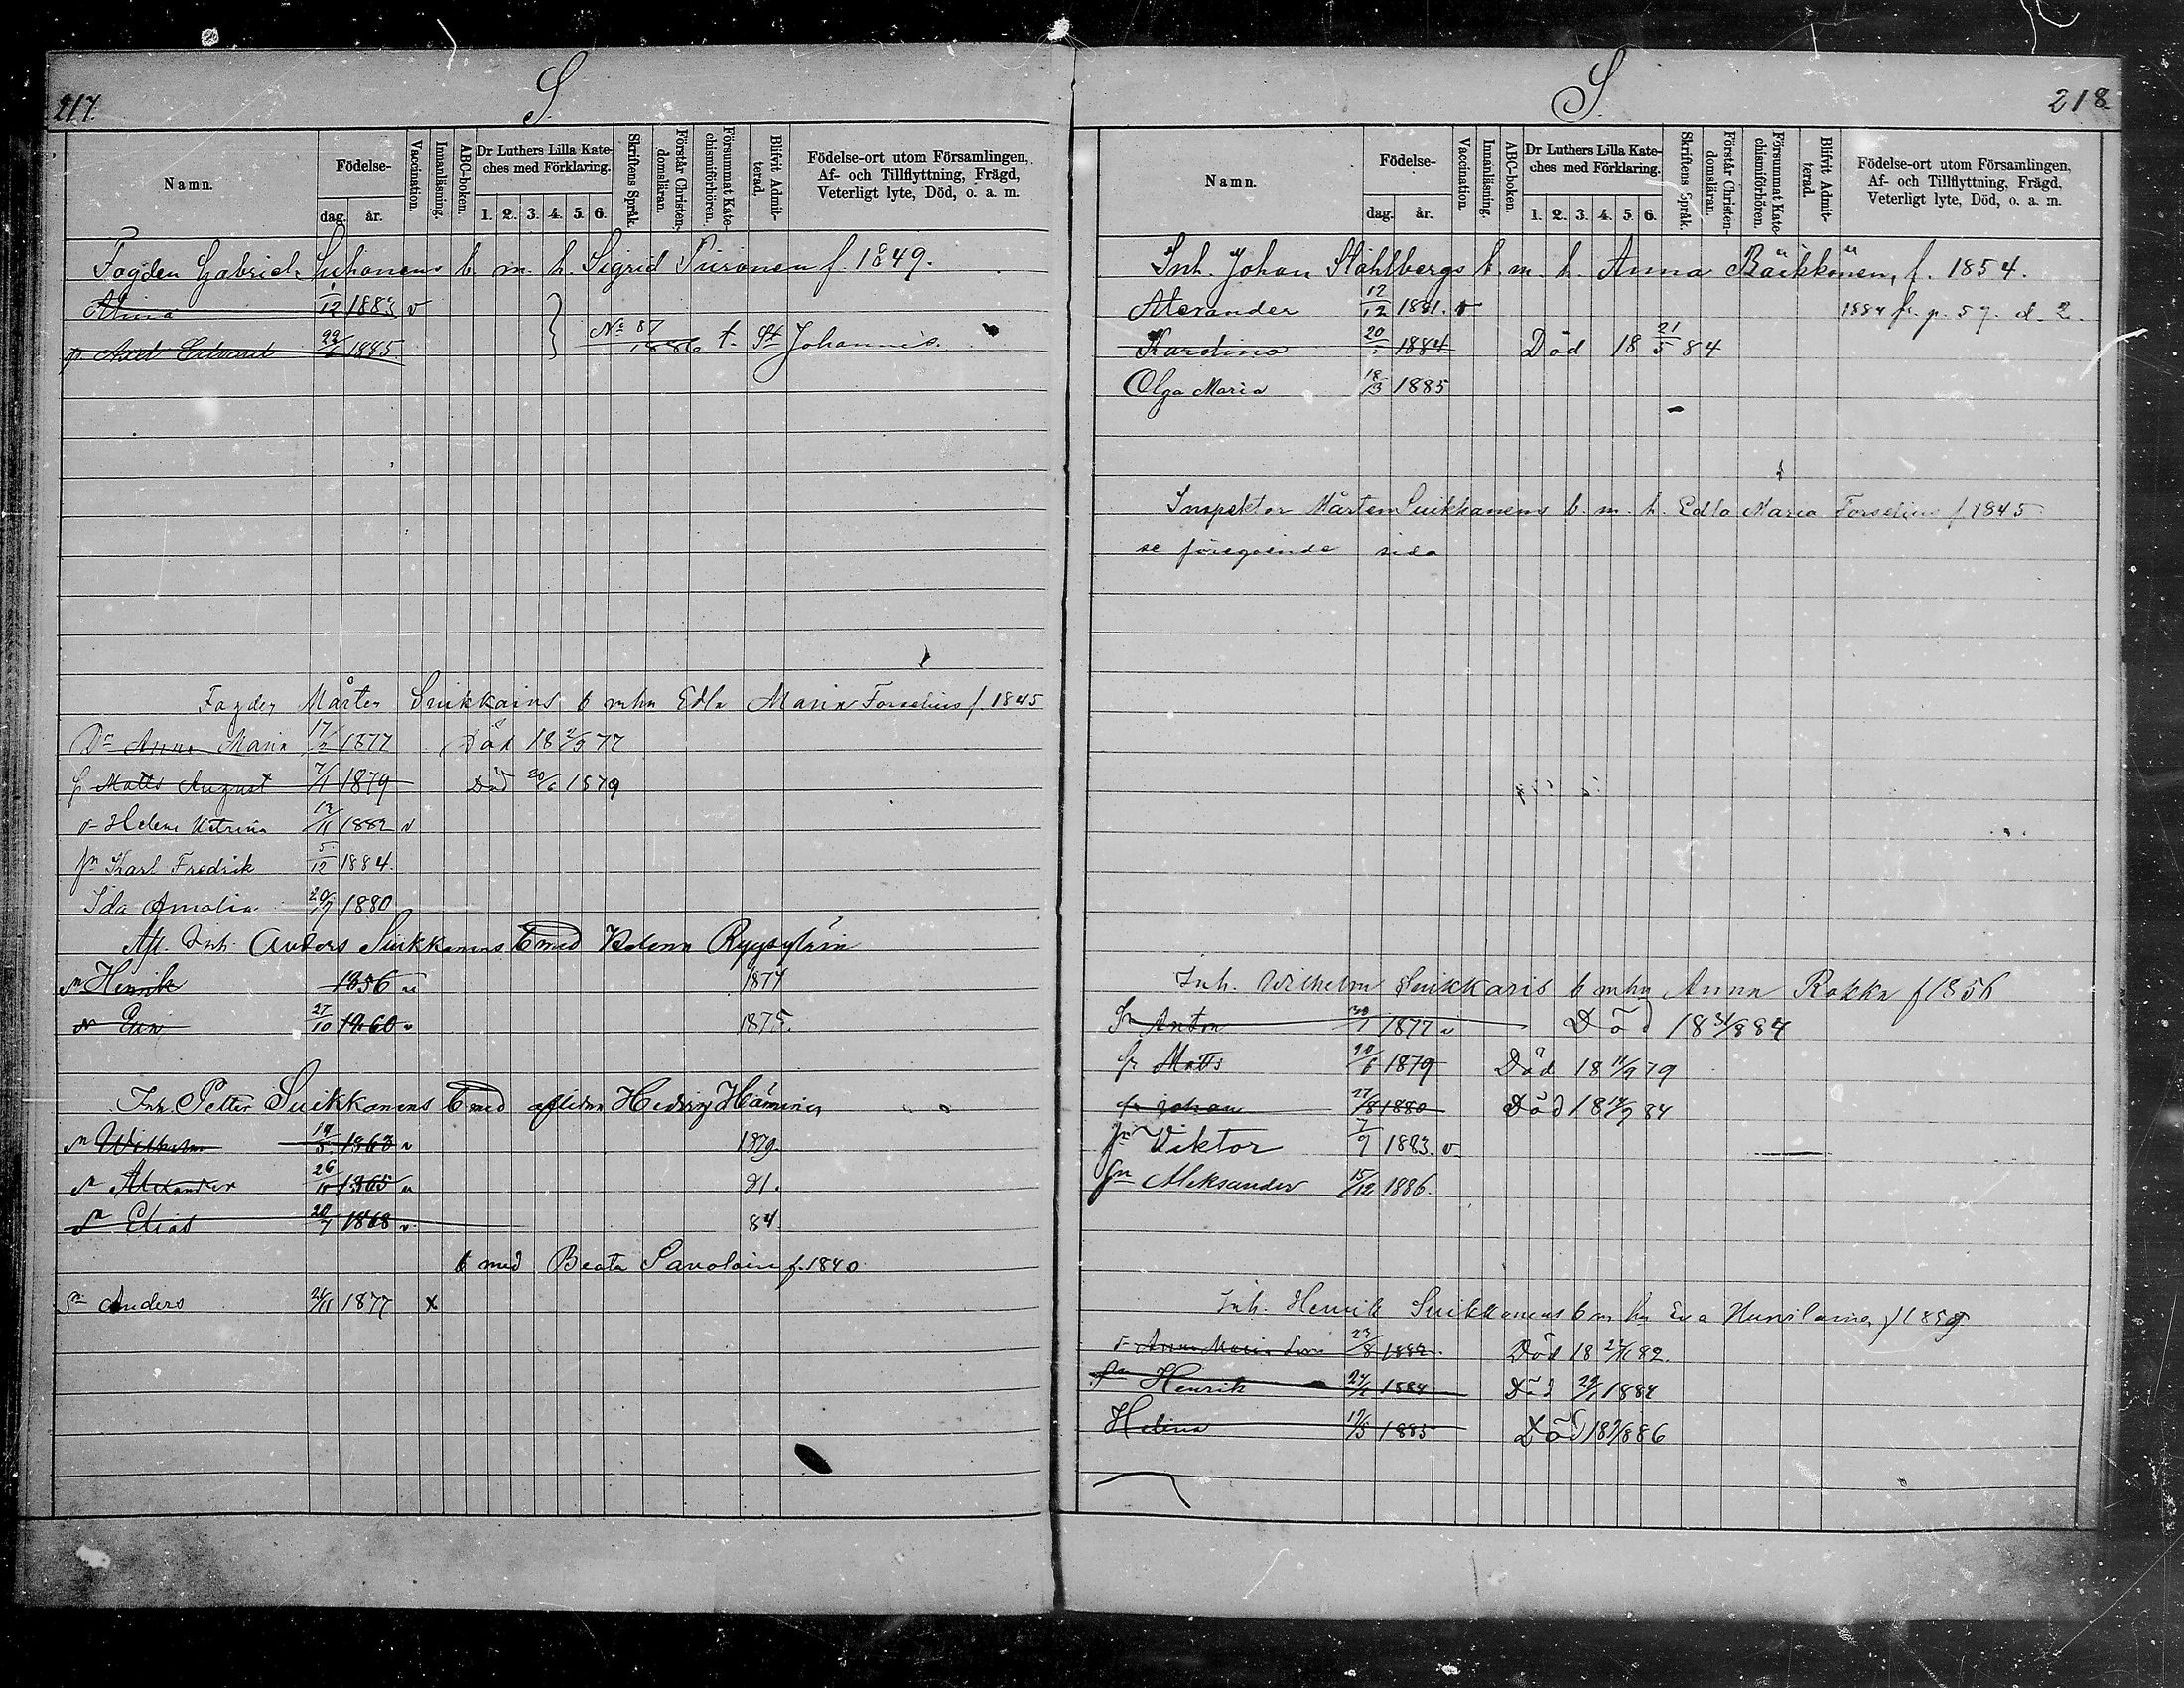 217.
S.
Namn.
Födelse-
dag.
år.
Vaccination.
Innanläsning.
ABC-boken.
Dr Luthers Lilla Kate-
ches med Förklaring.
1. 2. 3. 4. 5. 6.
Skriftens Språk.
Förstår Christen-
domsläran.
Försummat Kate-
chismiförhören.
Blifvit Admit-
terad.
Födelse-ort utom Församlingen,
Af- och Tillflyttning, Frägd,
Veterligt lyte, Död, o. a. m.
Fogden Gabriel b. m. h. Sigrid f. 1849.
1/12 1883 v
Axel Edvard 1885. No 87 1886 t. St Johannis.
Fogden Mårten Suikkains b mhu Edla Maria Forselius f. 1845
Dr Anna Maria 17/2 1877 Död 18 2/9 77
Matts August 7/1 1879 Död 20/6 1879
d- Helena 1882 v
fn Karl Fredrik 5/12 1884.
Ida Amalia 1880
Afl. Inh. Anders Suikkanens b med Helena
sn Henrik 1856 1877
27/10 1860 v 1875.
Inh. Petter Suikkanens b med aflidna Hedvig
sn Wilhelm 1863 v 1879.
sn Alexander 26/10 1865 81.
sn Elias 20/7 1868 v 84.
b med Beata Savolain f. 1840.
Sn Anders 1877 x
S.
218.
Namn.
Födelse-
dag.
år.
Vaccination.
Innanläsning.
ABC-boken.
Dr Luthers Lilla Kate-
ches med Förklaring.
1. 2. 3. 4. 5. 6.
Skriftens Språk.
Förstår Christen-
domsläran.
Försummat Kate-
chismiförhören.
Blifvit Admit-
terad.
Födelse-ort utom Församlingen,
Af- och Tillflyttning, Frägd,
Veterligt lyte, Död, o. a. m.
Inh. Johan Ståhlbergs b. m. h. Anna Bäikkönen, f. 1854.
Alexander 12/12 1881. v 1884 fr. p. 57. d. 2.
Karolina 1884. Död 18 21/5 84
Olga Maria 18/3 1885
Inspektor Mårten Suikkanens b. m. h. Edla Maria Forselius f 1845
se föregående sida
Inh. Wilhelm Suikkaris b mhu Anna Rokka f 1856
Sn Anton 1877 Död 18 31/8 84
fr Matts 20/6 1879 Död 18 11/9 79
fr Johan 27/8 1880 Död 18 84
fn Viktor 7/9 1883. v
fn Aleksander 15/12 1886.
Inh. Henrik Suikkanens b m hu Eva f 1859
d- Anna Maria 1882. Död 18 82.
fn Henrik 1884 Död 1884
Helena 17/5 1885 Död 18 86